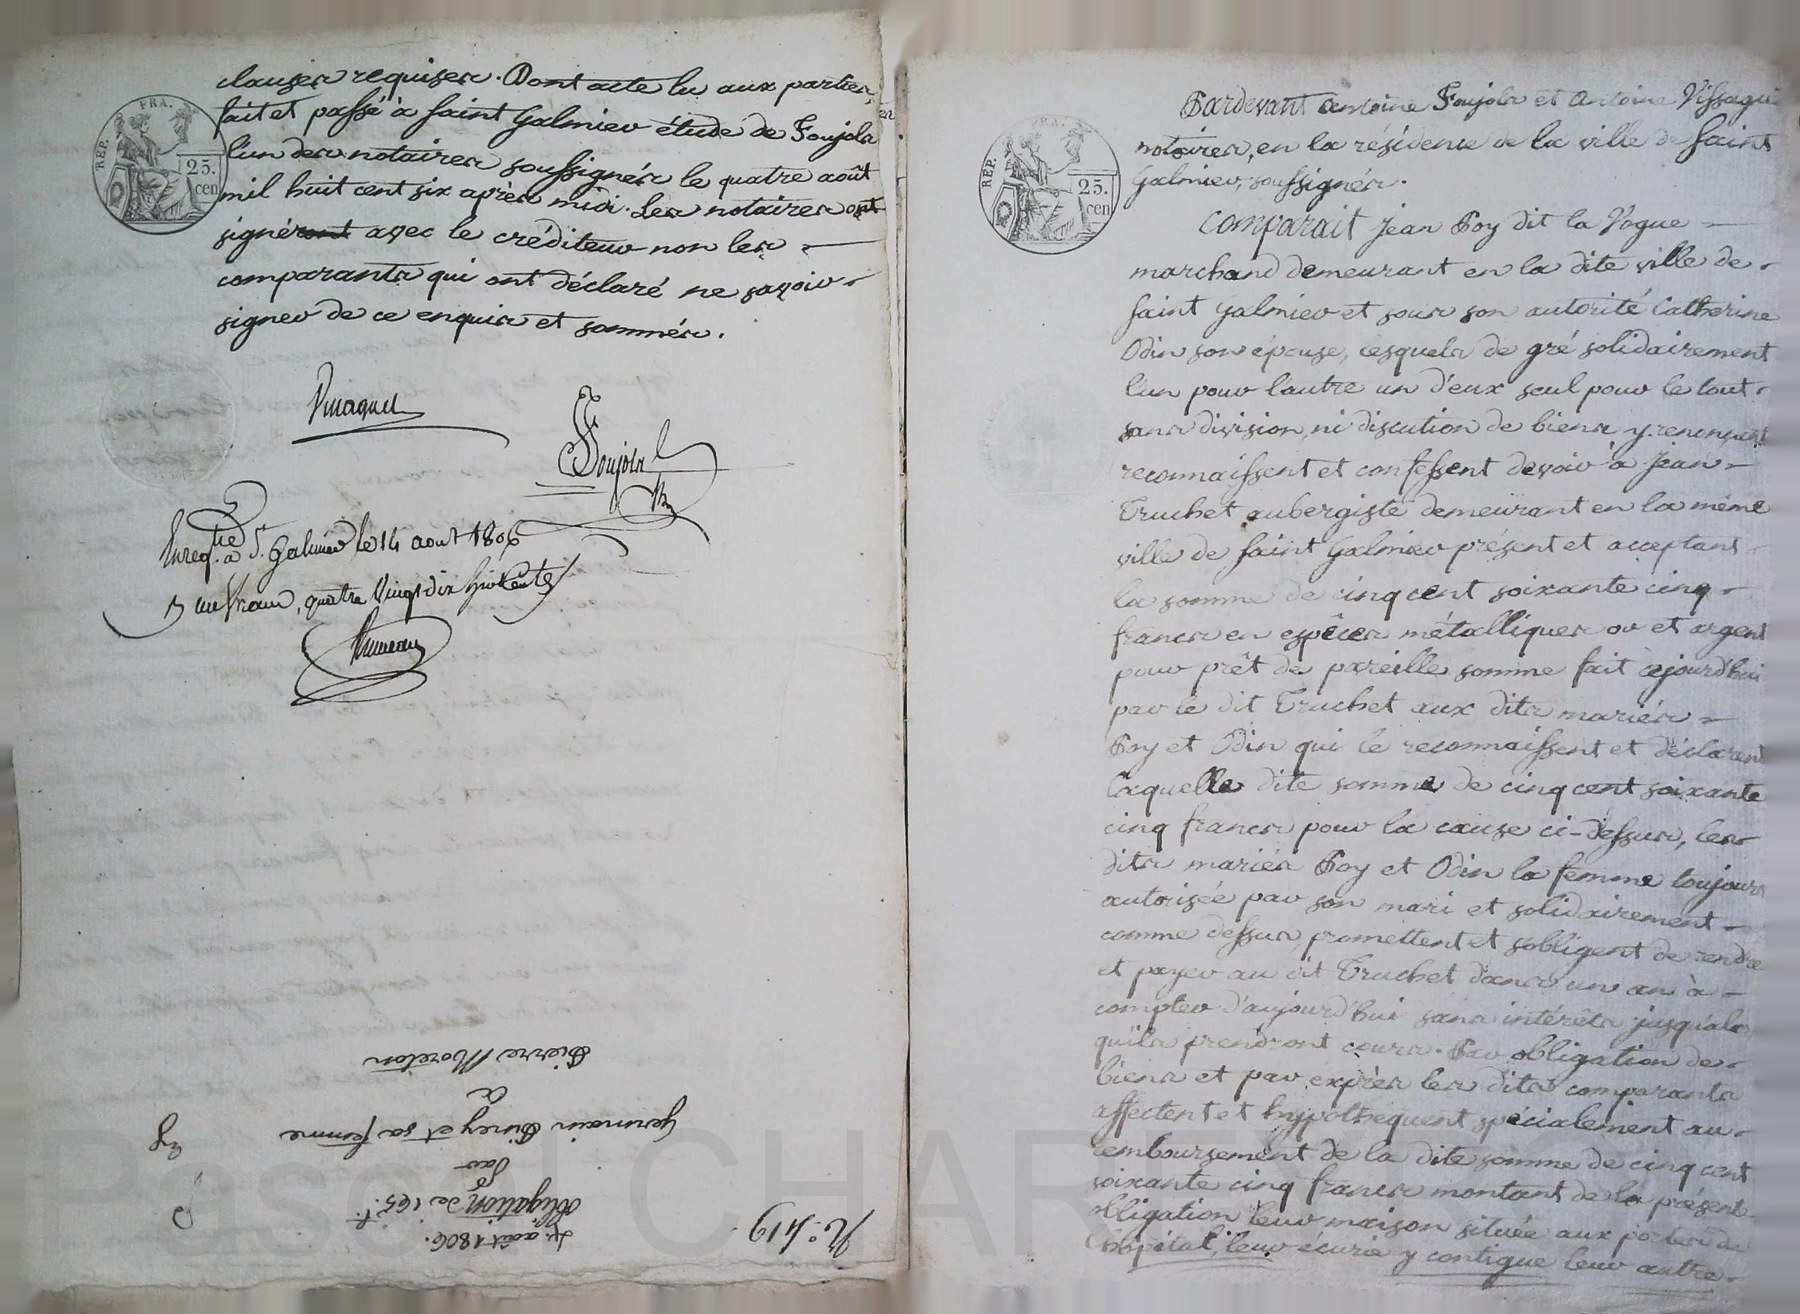 clauses requises. Dont acte lu aux parties,
fait et passé à Saint Galmier en étude de Foujols
l'un des notaires soussignés le quatre août
mil huit cent six après midi. Les notaires ont
signéront avec le créditeur non les
comparants qui ont déclaré ne savoir
signer de ce enquis et sommés.
REP. FRA.
25.
cen
Foujols
Enreg. à St. Galmier le 14 aout 1806
un franc, quatre vingt dix huit cent
Pierre Moreton
à
Germain et sa femme
par
obligation de 165 f.
4. août 1806.
N.° 419.
Pardevant Antoine Foujols et Antoine Vissaguet
notaires, en la résidence de la ville de Saint
Galmier, soussignés.
REP. FRA.
25.
cen
Comparait Jean Poy dit la Vogue
marchand demeurant en la dite ville de
Saint Galmier et sous son autorité Catherine
Odin son épouse, lesquels de gré solidairement
l'un pour l'autre un d'eux seul pour le tout
sans division, ni discution de biens y renonçant
reconnaissent et confessent devoir à Jean
Truchet aubergiste demeurant en la même
ville de Saint Galmier présent et acceptant
la somme de cinq cent soixante cinq
francs en espèces métalliques or et argent
pour prêt de pareille somme fait cejourd'hui
par le dit Truchet aux dits mariés
Poy et Odin qui le reconnaissent et déclarent
laquelle dite somme de cinq cent soixante
cinq francs pour la cause ci-dessus, les
dits mariés Poy et Odin la femme toujours
autorisée par son mari et solidairement
comme dessus promettent et s'obligent de rendre
et payer au dit Truchet dans un an à
compter d'aujourd'hui sans intérêts jusqu'alors
qu'ils prendront cours. Par obligation de
biens et par exprès les dits comparants
affectent et hypothequent spécialement au
remboursement de la dite somme de cinq cent
soixante cinq francs montant de la présent
obligation leur maison située aux portes de
l'hôpital, leur écurie y contigue leur autre
Pascal CHAR